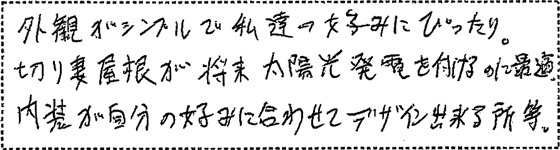 外観がシンプルで私達の好みにぴったり。
切り妻屋根が将来太陽光発電を付けるのに最適
内装が自分の好みに合わせてデザイン出来る所等。